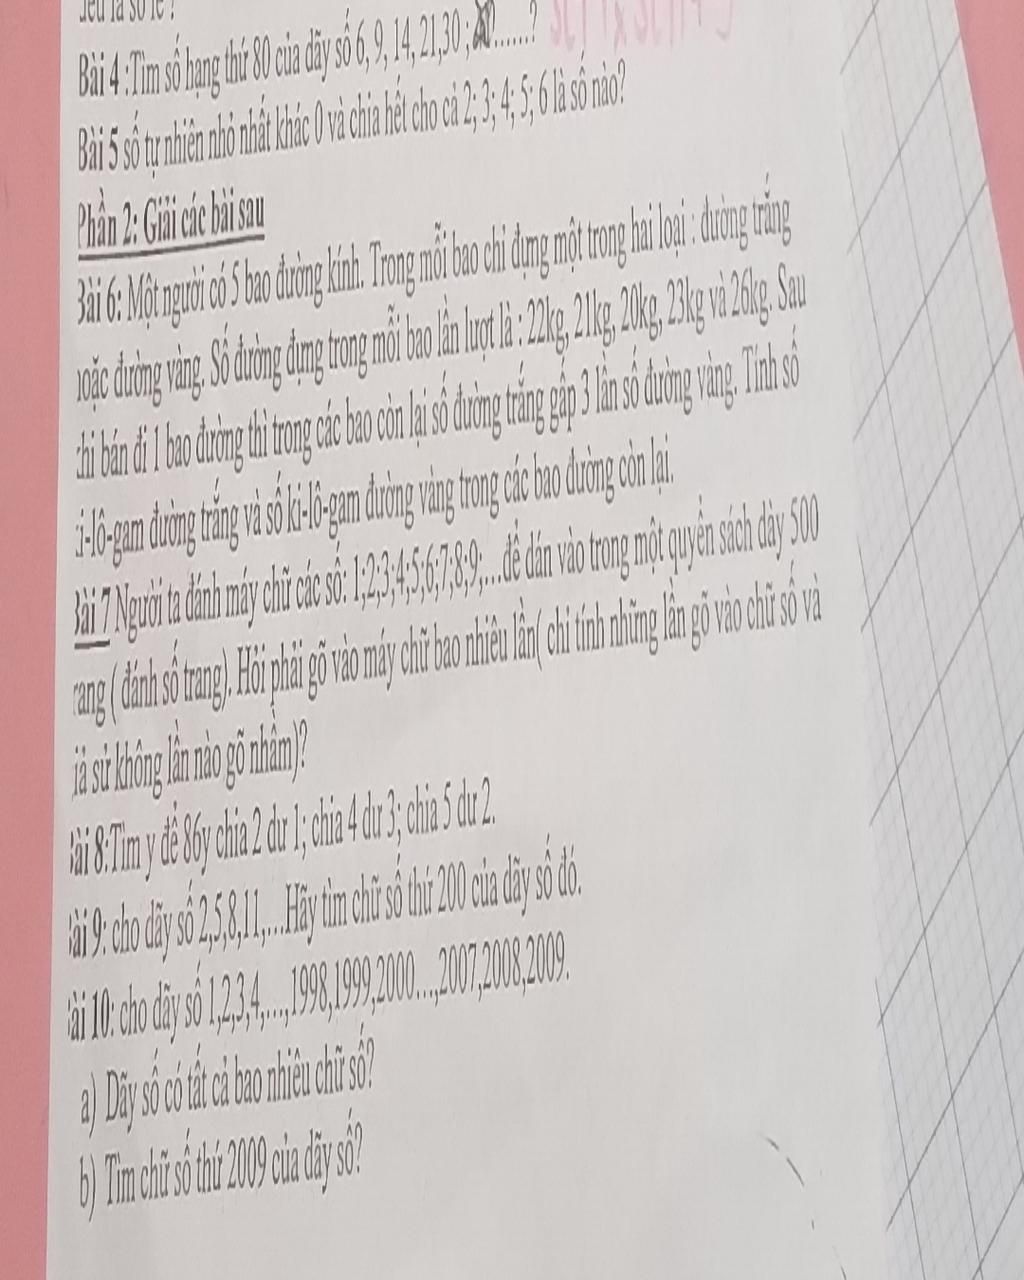 là số lẻ ?
Bài 4 :Tìm số hạng thứ 80 của dãy số 6, 9, 14, 21,30 ; ......?
Bài 5 số tự nhiên nhỏ nhất khác 0 và chia hết cho cả 2; 3; 4; 5; 6 là số nào?
Phần 2: Giải các bài sau
Bài 6: Một người có 5 bao đường kính. Trong mỗi bao chỉ đựng một trong hai loại : đường trắng
hoặc đường vàng. Số đường đựng trong mỗi bao lần lượt là : 22kg, 21kg, 20kg, 23kg và 26kg. Sau
khi bán đi 1 bao đường thì trong các bao còn lại số đường trắng gấp 3 lần số đường vàng. Tính số
ki-lô-gam đường trắng và số ki-lô-gam đường vàng trong các bao đường còn lại.
Bài 7 Người ta đánh máy chữ các số: 1;2;3;4;5;6;7;8;9;…để dán vào trong một quyển sách dày 500
rang ( đánh số trang). Hỏi phải gõ vào máy chữ bao nhiêu lần( chỉ tính những lần gõ vào chữ số và
iả sử không lần nào gõ nhầm)?
ài 8:Tìm y để 86y chia 2 dư 1; chia 4 dư 3; chia 5 dư 2.
ài 9: cho dãy số 2,5,8,11,…Hãy tìm chữ số thứ 200 của dãy số đó.
ài 10: cho dãy số 1,2,3,4,…,1998,1999,2000…,2007,2008,2009.
a) Dãy số có tất cả bao nhiêu chữ số?
b) Tìm chữ số thứ 2009 của dãy số?